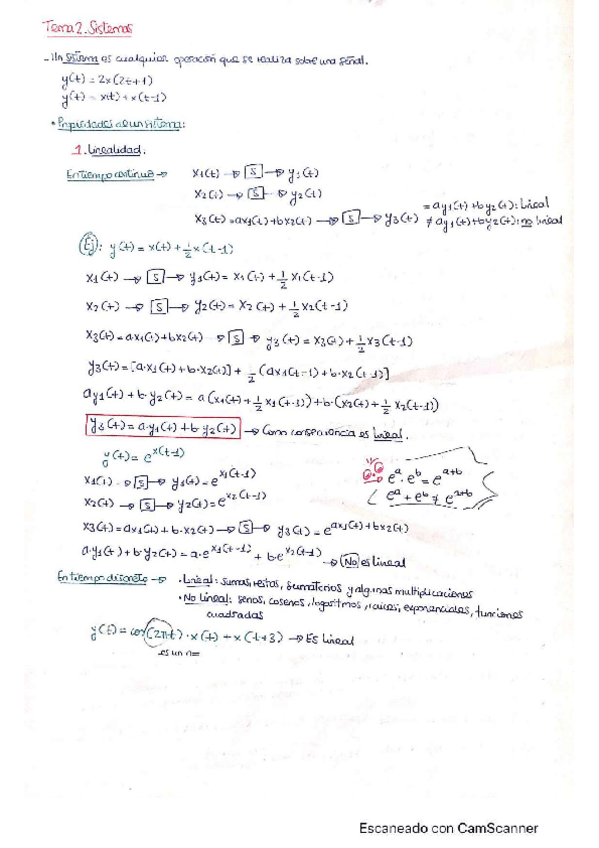 Tema 2. Sistemas
- Un sistema es cualquier operación que se realiza sobre una señal.
y(t) = 2x(2t+1)
y(t) = x(t) + x(t-1)
• Propiedades de un sistema:
1. Linealidad.
En tiempo continuo → x1(t) → [S] → y1(t)
x2(t) → [S] → y2(t)
x3(t) = ax1(t) + bx2(t) → [S] → y3(t) = ay1(t) + by2(t): lineal
≠ ay1(t) + by2(t): no lineal
Ej: y(t) = x(t) + 1/2 x(t-1)
x1(t) → [S] → y1(t) = x1(t) + 1/2 x1(t-1)
x2(t) → [S] → y2(t) = x2(t) + 1/2 x2(t-1)
x3(t) = ax1(t) + bx2(t) → [S] → y3(t) = x3(t) + 1/2 x3(t-1)
y3(t) = [a·x1(t) + b·x2(t)] + 1/2 (ax1(t-1) + b·x2(t-1)]
ay1(t) + b·y2(t) = a(x1(t) + 1/2 x1(t-1)) + b·(x2(t) + 1/2 x2(t-1))
y3(t) = a·y1(t) + b·y2(t) → Como consecuencia es lineal.
y(t) = e^x(t-1)
x1(t) → [S] → y1(t) = e^x1(t-1)
e^a · e^b = e^a+b
x2(t) → [S] → y2(t) = e^x2(t-1)
e^a + e^b ≠ e^a+b
x3(t) = ax1(t) + b·x2(t) → [S] → y3(t) = e^ax1(t)+bx2(t)
a·y1(t) + b·y2(t) = a·e^x1(t-1) + b·e^x2(t-1) → No es lineal
En tiempo discreto → • Lineal: sumas, restas, sumatorios y algunas multiplicaciones
• No lineal: senos, cosenos, logaritmos, raíces, exponenciales, funciones
cuadradas
y(t) = cos(2πt) · x(t) + x(t+3) → Es lineal
es un nº
Escaneado con CamScanner